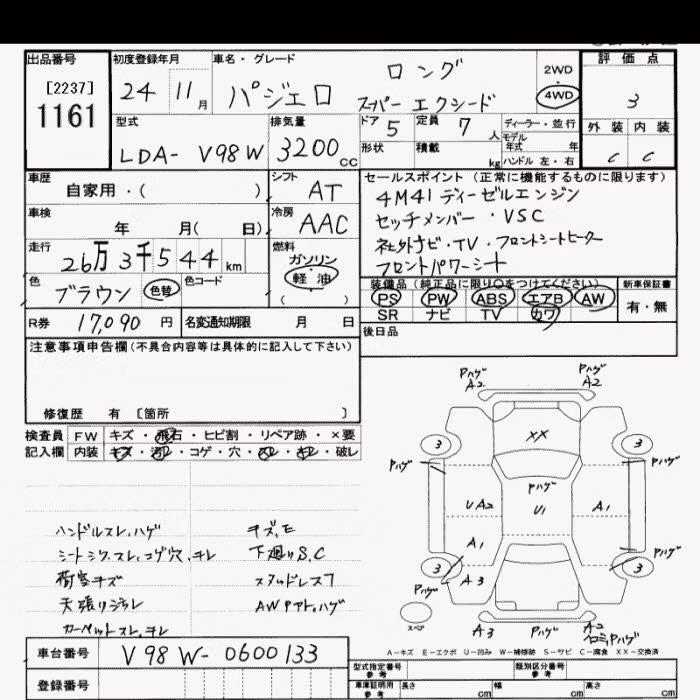 出品番号
[2237]
1161
初度登録年月
24 11月
車名・グレード
パジェロ
ロング
スーパーエクシード
2WD
4WD
評価点
3
外装 内装
C C
型式
LDA- V98W
排気量
3200cc
ドア 5
定員 7人
形状
積載 kg
ディーラー・並行
モデル
年式 年
ハンドル 左・右
車歴
自家用・( )
シフト
AT
車検
年 月( 日)
冷房
AAC
走行
26万3千544km
燃料
ガソリン
軽油
( )
色
ブラウン 色替
色コード
R券 17,090円
名変通知期限 月 日
セールスポイント(正常に機能するものに限ります)
4M41 ディーゼルエンジン
セッチメンバー・VSC
社外ナビ・TV・フロントシートヒーター
フロントパワーシート
装備品(純正品に限り○をつけてください)
PS PW ABS エアB AW
SR ナビ TV カワ
新車保証書
有・無
後日品
注意事項申告欄(不具合内容等は具体的に記入して下さい)
修復歴 有 〔箇所 〕
検査員 FW キズ・飛石・ヒビ割・リペア跡・×要
記入欄 内装 キズ・汚レ・コゲ・穴・スレ・キレ・破レ
ハンドルスレ、ハゲ
シートシワ、スレ、コゲ穴、チレ
荷室キズ
天張リヨゴレ
カーペットスレ、チレ
下廻りS.C
スタッドレス7
Pハゲ
A2
Pハゲ
A2
XX
3
3
Pハゲ
Pハゲ
Pハゲ
UA2
U1
A1
A1
3
A3
Pハゲ
3
Pハゲ
スペア
A3
Pハゲ
A2
A-キズ E-エクボ U-凹み W-補修跡 S-サビ C-腐食 XX-交換済
車台番号
V98W-0600133
登録番号
型式指定番号
参考
類別区分番号
参考
車庫証明用
参考
長さ cm
幅 cm
高さ cm